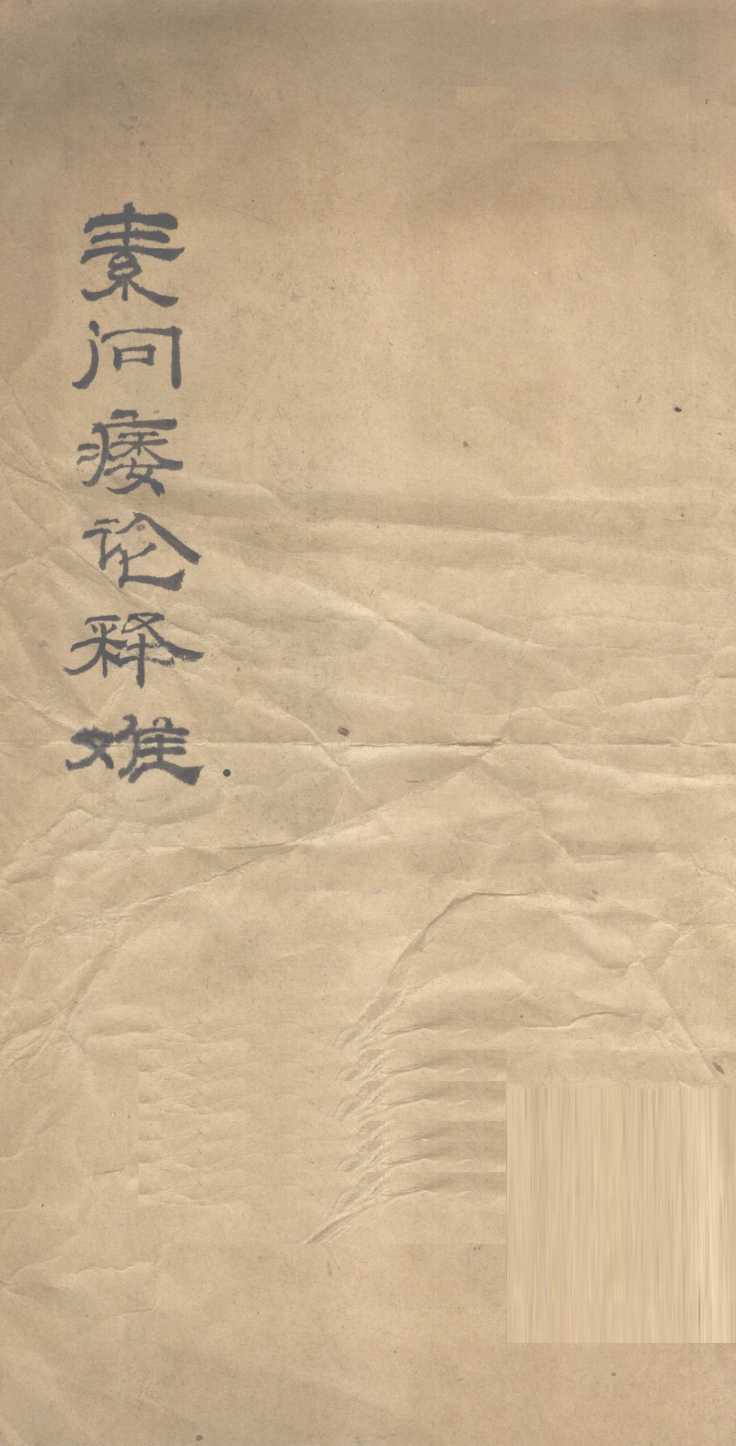 素问痿论释难